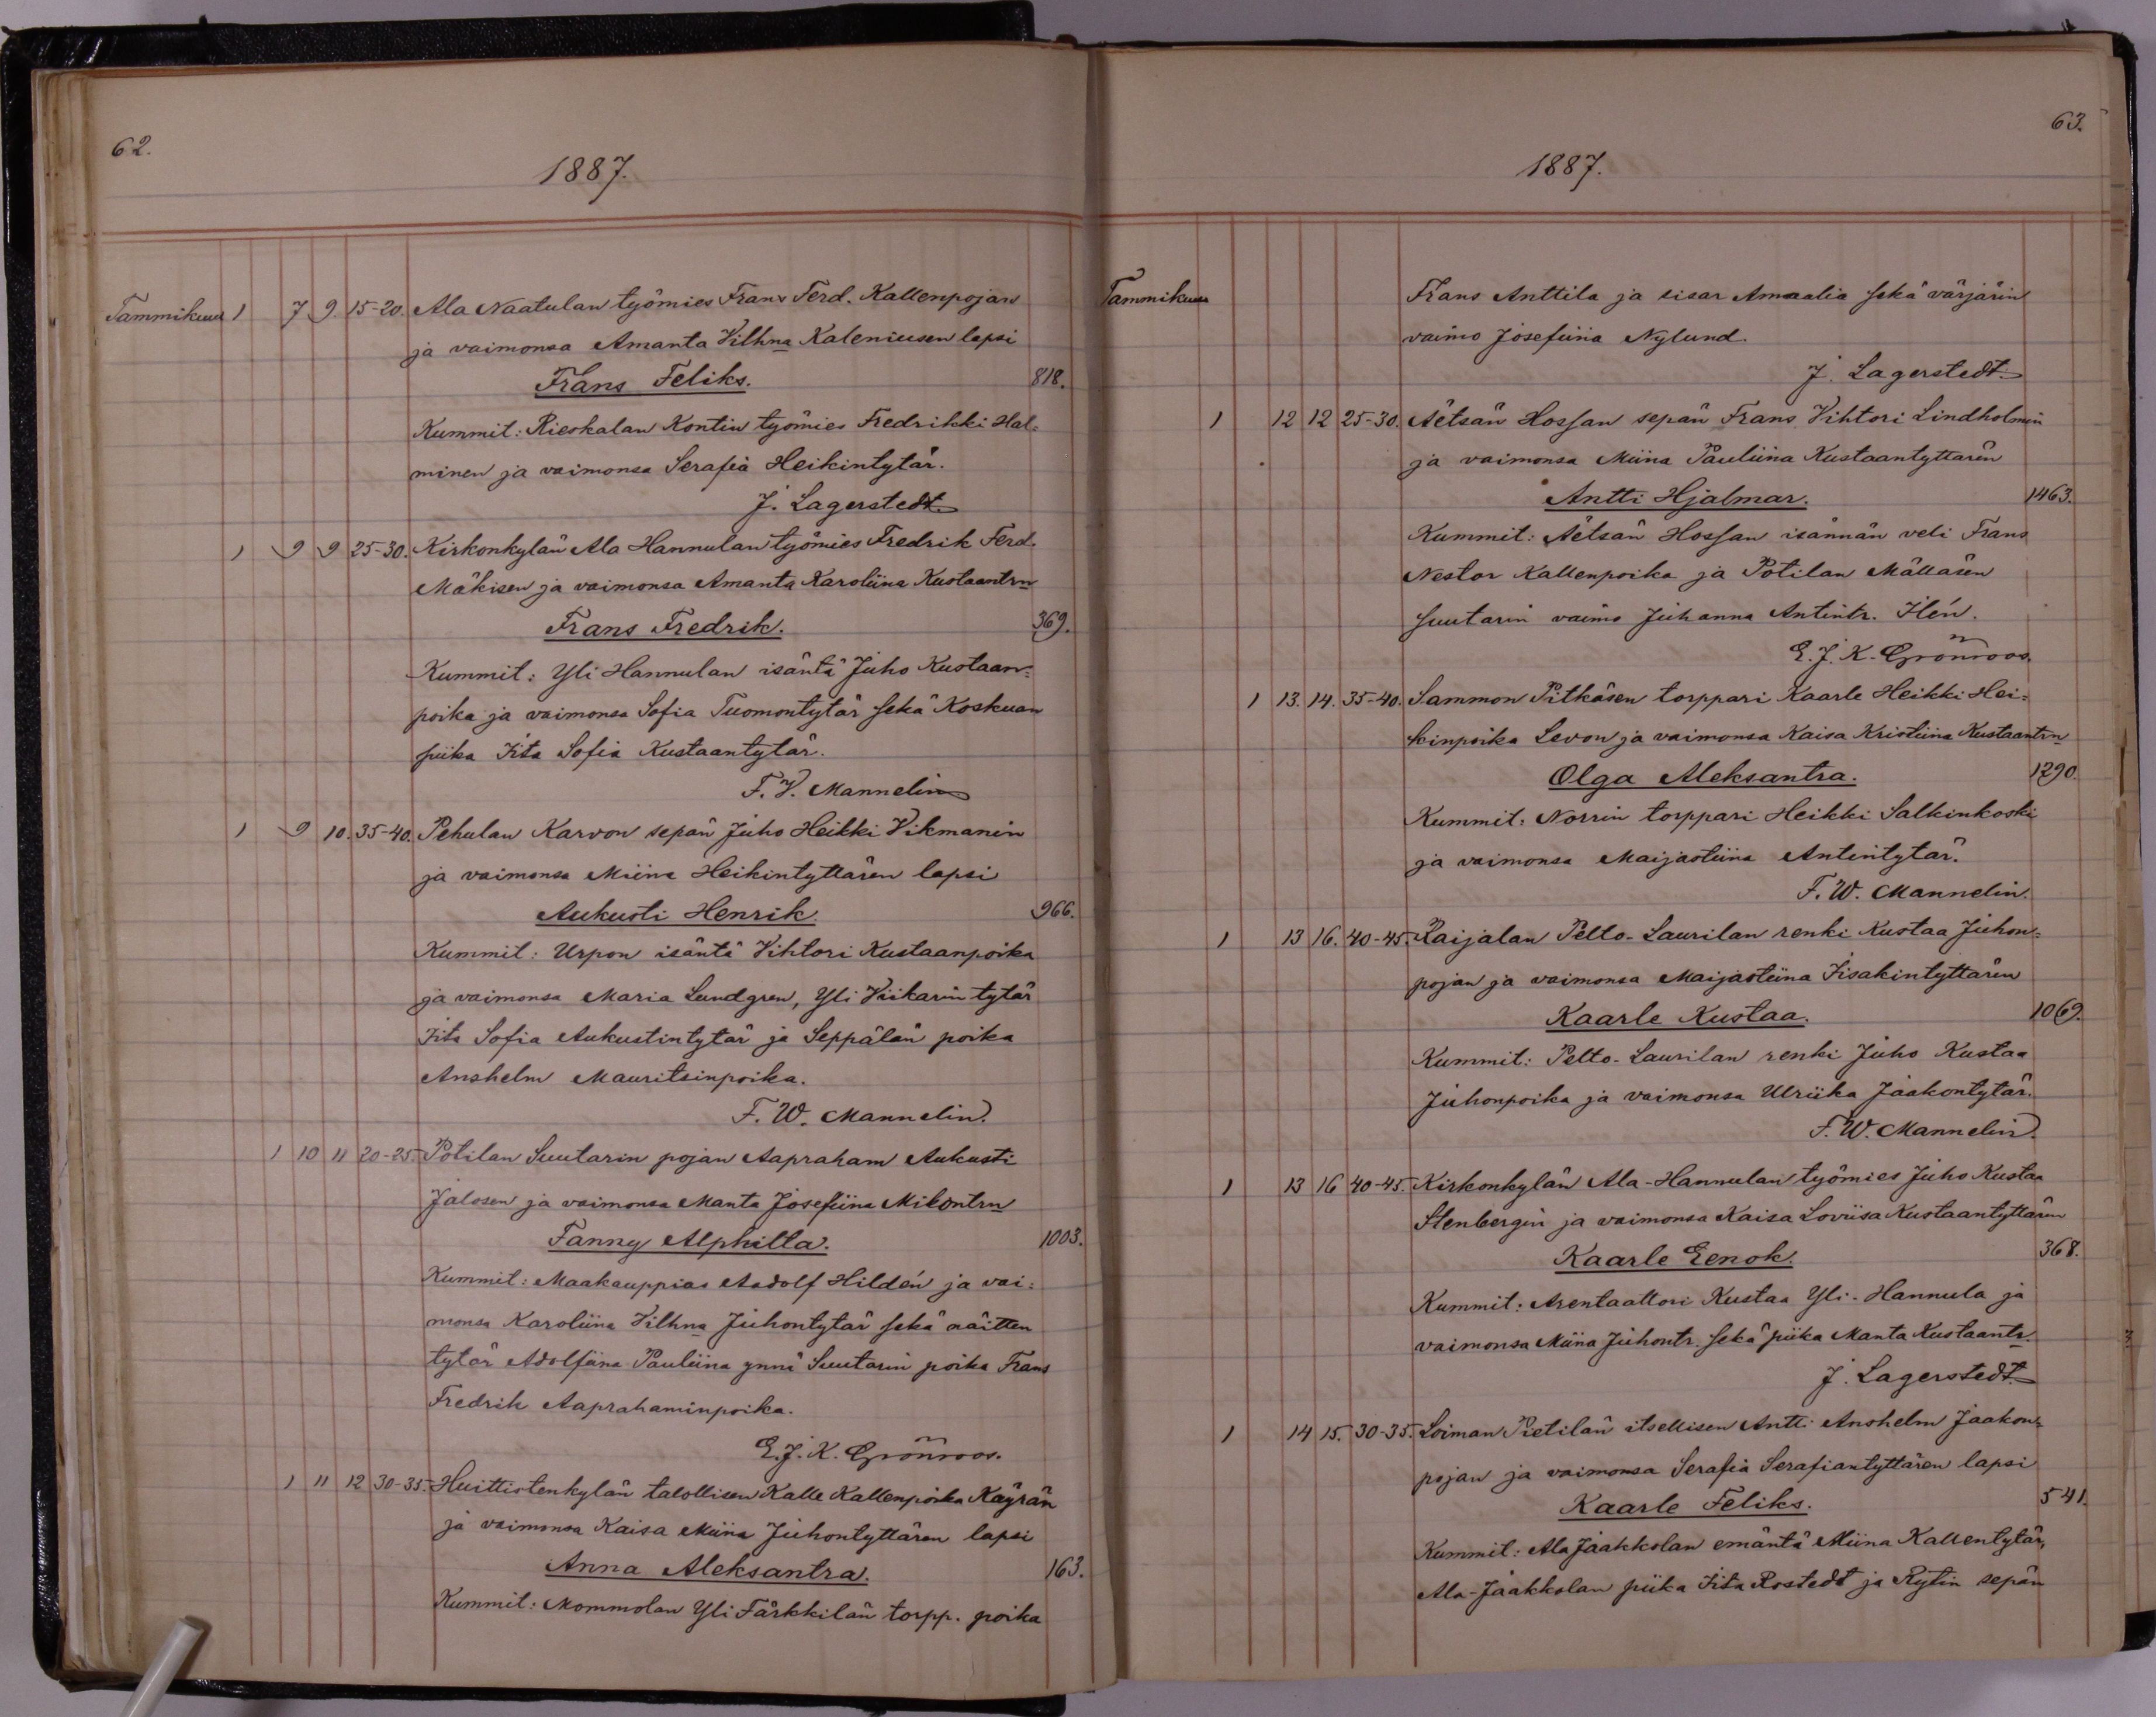 62.
1887.
Tammikuu 1 7 9. 15-20. Ala Naatulan työmies Frans Ferd. Kallenpojan
ja vaimonsa Amanta Vilhna Kaleniusen lapsi
Frans Feliks. 818.
Kummit: Rieskalan Kontin työmies Fredrikki Hal=
minen ja vaimonsa Serafia Heikintytär.
J. Lagerstedt
1 9 9 25-30. Kirkonkylän Ala Hannulan työmies Fredrik Ferd.
Mäkisen ja vaimonsa Amanta Karoliina Kustaantrn
Frans Fredrik. 369.
Kummit: Yli Hannulan isäntä Juho Kustaan=
poika ja vaimonsa Sofia Tuomontytär sekä Koskuan
piika Iita Sofia Kustaantytär.
F. V. Mannelin
1 9 10. 35-40. Pehulan Karvon sepän Juho Heikki Vikmanin
ja vaimonsa Miina Heikintyttären lapsi
Aukusti Henrik. 966.
Kummit: Urpon isäntä Vihtori Kustaanpoika
ja vaimonsa Maria Lundgren, Yli Viikarin tytär
Iita Sofia Aukustintytär ja Seppälän poika
Anshelm Mauritsinpoika.
F. W. Mannelin.
1 10 11 20-25. Potilan Suutarin pojan Aapraham Aukusti
Jalosen ja vaimonsa Manta Josefiina Mikontrn
Fanny Alphilta. 1003.
Kummit: Maakauppias Aadolf Hildén ja vai=
monsa Karoliina Vilhna Juhontytär sekä näitten
tytär Adolfiina Pauliina ynnä Suutarin poika Frans
Fredrik Aaprahaminpoika.
E. J. K. Grönroos.
1 11 12 30-35. Huittistenkylän talollisen Kalle Kallenpoika Käyrän
ja vaimonsa Kaisa Miina Juhontyttären lapsi
Anna Aleksantra. 163.
Kummit: Mommolan Yli Färkkilän torpp. poika
63.
1887.
Tammikuu Frans Anttila ja sisar Amaalia sekä värjärin
vaimo Josefiina Nylund.
J. Lagerstedt
1 12 12 25-30. Äetsän Hossan sepän Frans Vihtori Lindholmin
ja vaimonsa Miina Pauliina Kustaantyttären
Antti Hjalmar. 1463.
Kummit: Äetsän Hossan isännän veli Frans
Nestor Kallenpoika ja Potilan Mällären
suutarin vaimo Juhanna Antintr. Ilén.
E. J. K. Grönroos.
1 13. 14. 35-40. Sammon Pitkäsen torppari Kaarle Heikki Hei=
kinpoika Levon ja vaimonsa Kaisa Kristiina Kustaantrn
Olga Aleksantra. 1290.
Kummit: Norrin torppari Heikki Salkinkoski
ja vaimonsa Maijastiina Antintytär.
F. W. Mannelin.
1 13 16. 40-45. Raijalan Pelto-Laurilan renki Kustaa Juhon=
pojan ja vaimonsa Maijastiina Iisakintyttären
Kaarle Kustaa. 1069.
Kummit: Pelto-Laurilan renki Juho Kustaa
Juhonpoika ja vaimonsa Ulriika Jaakontytär.
F. W. Mannelin.
1 13 16 40-45. Kirkonkylän Ala-Hannulan työmies Juho Kustaa
Stenbergin ja vaimonsa Kaisa Loviisa Kustaantyttären
Kaarle Eenok. 368.
Kummit: Arentaattori Kustaa Yli-Hannula ja
vaimonsa Miina Juhontr. sekä piika Manta Kustaantr.
J. Lagerstedt
1 14 15. 30-35. Loiman Pietilän itsellisen Antti Anshelm Jaakon=
pojan ja vaimonsa Serafia Serafiantyttären lapsi
Kaarle Feliks. 541.
Kummit: Ala Jaakkolan emäntä Miina Kallentytär,
Ala-Jaakkolan piika Iita Rostedt ja Rytin sepän